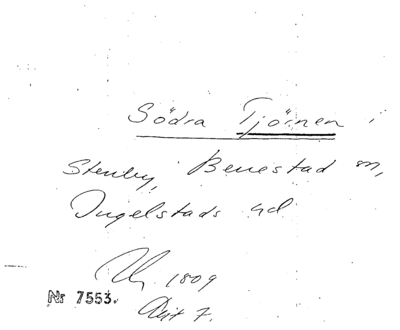 Södra Tjörnen i
Stenby, Benestad sn,
Ingelstads hd
1809
Nr 7553.
Akt 7.